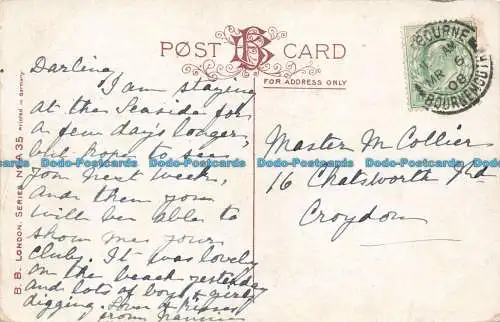 POST CARD
FOR ADDRESS ONLY
B. B. LONDON. SERIES No A 35 Printed in Germany.
BOURNEMOUTH
MR 6
08
Darling
I am staying
at the Seaside for
a few days longer,
but hope to see
you next week,
And then you
will be able to
show me your
It was lovely
on the beach yesterday
and lots of boys & girls
digging. Love & kisses
from
Master M Collier
16 Chatsworth Rd
Croydon
Bodo-Postcards